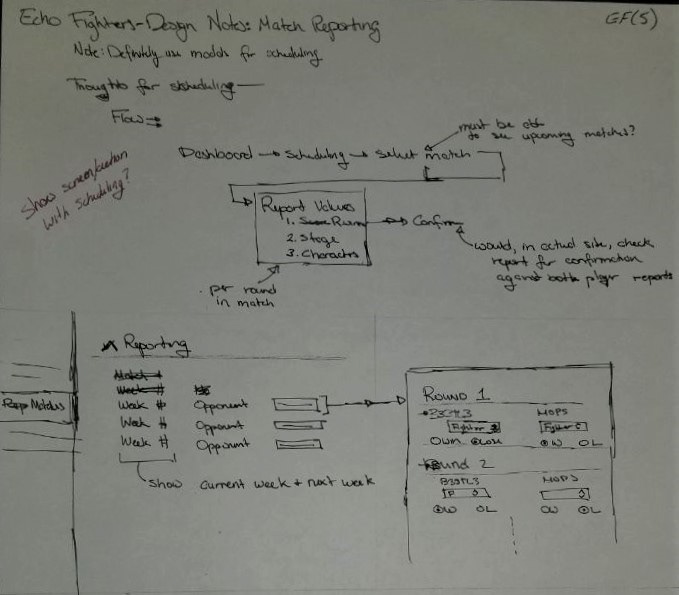 Echo Fighters-Design Notes: Match Reporting
GF(5)
Note: Definitely use models for scheduling
Thoughts for scheduling
Flow
must be able
to see upcoming matches?
Dashboard → Scheduling → Select match
Show screen/section
with scheduling?
Report Values
1. Score
2. Stage
3. Characters
Confirm
would, in actual site, check
report for confirmation
against both player reports
per round
in match
Reporting
Match #
Week #
Week # Opponent
Week # Opponent
Week # Opponent
Show current week + next week
Matches
Round 1
MOPS
Fighter
Fighter
Win Lose
W L
Round 2
MOPS
F
W L
W L